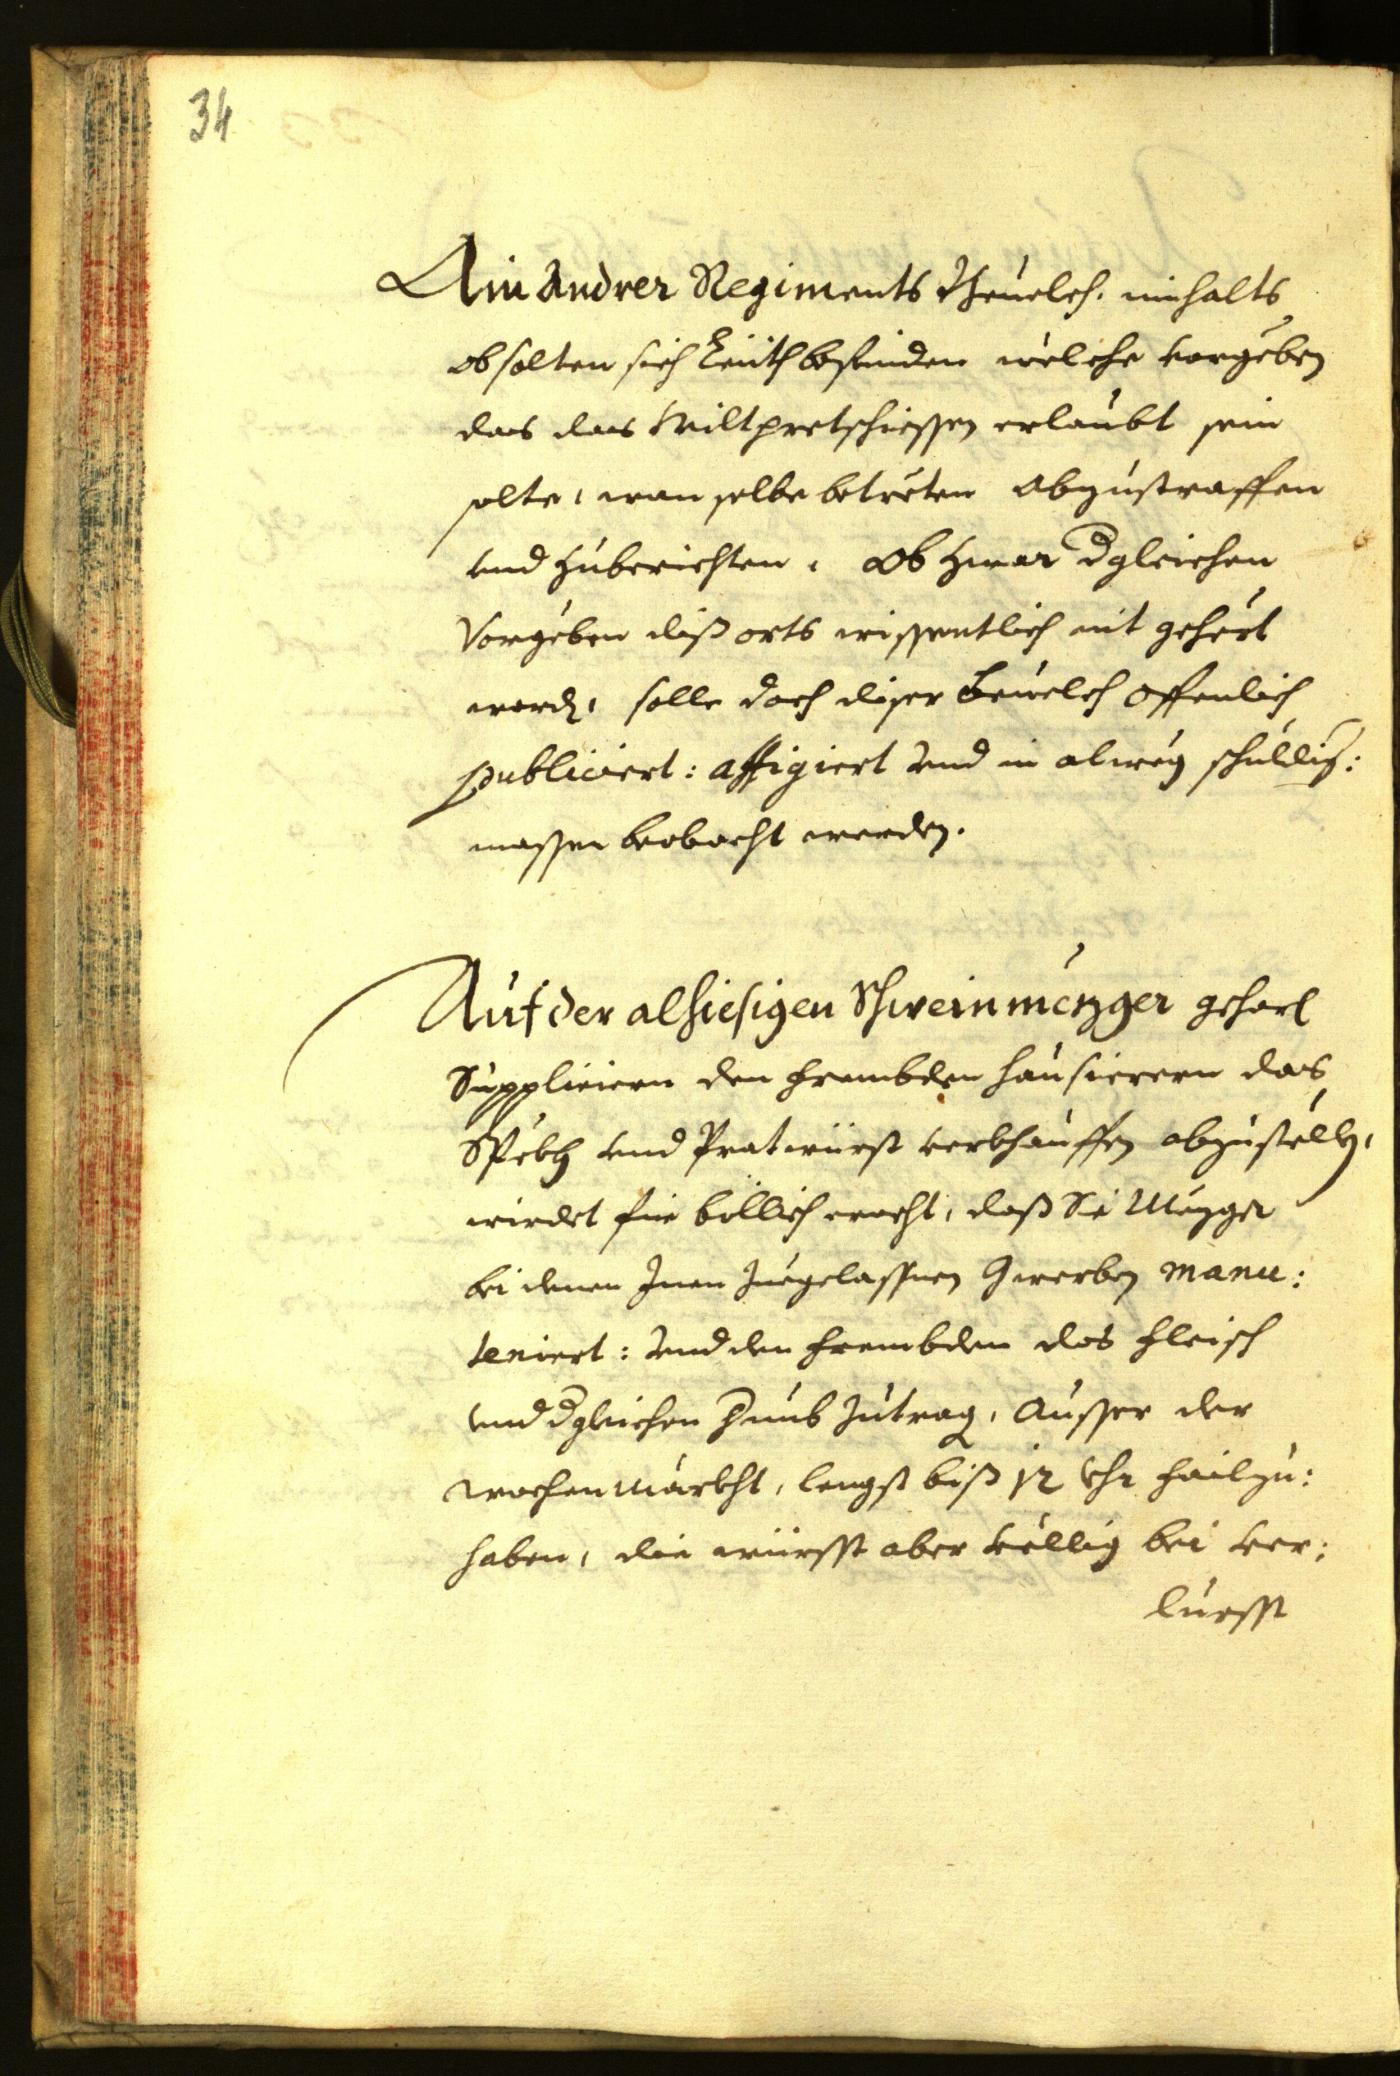 34
Ain Andrer Regiments Beuelch. innhalts
ob solten sich Leuth befinden welche vorgeben
das das Wiltpretschiessen erlaubt sein
solte, wan selbe betreten abzustraffen
vnd zuberichten. Ob zwar dgleichen
Vorgeben diß orts wissentlich nit gehert
word, solle doch diser Beuelch offenlich
publiciert: affigiert vnd in alweg schuldig:
massen beobacht werden.
Auf der alhiesigen Schweinmezger gehors
Suppliciern den frembden hausierern das
Spekh vnd Pratwürst verkhauffen abzustelln,
wirdet für billich eracht, daß Si Mezger
bei denen Inen zuegelassnen Gwerben manu:
teniert: vnd den frembden das fleisch
vnd dgleichen zutrag, Ausser der
wochenmärkht, lengst biß 12 Vhr failzu:
haben, die würsst aber völlig bei ver:
luesst